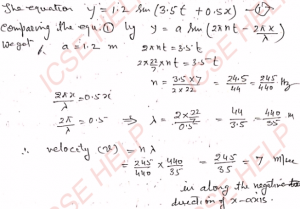 The equation y = 1.2 sin (3.5t + 0.5x) - ①
Comparing the equ. ① by y = a sin (2πnt - 2πx/λ)
We get, a = 1.2 m
2πnt = 3.5t
2 × 22/7 × nt = 3.5t
n = 3.5×7 / 2×22 = 24.5/44 = 245/440 Hz
2πx/λ = 0.5x
2π/λ = 0.5 ⇒ λ = 2×22 / 0.5×7 = 44/3.5 = 440/35 m
∴ velocity (v) = nλ
= 245/440 × 440/35 = 245/35 = 7 m/sec
is along the negative
direction of x-axis.
ICSE HELP
ICSE HELP
ICSE HELP